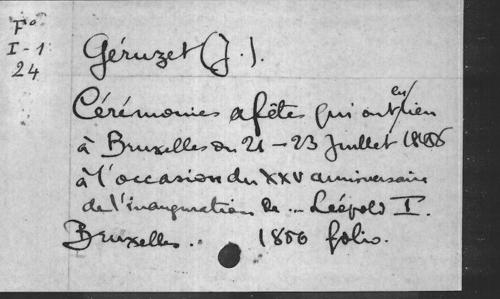 Fº
I-1
24
Géruzet (J.).
Cérémonies & fêtes qui ont eu lieu
à Bruxelles du 21-23 Juillet 1856
à l'occasion du XXV anniversaire
de l'inauguration de ... Léopold I.
Bruxelles.. 1856 folio.